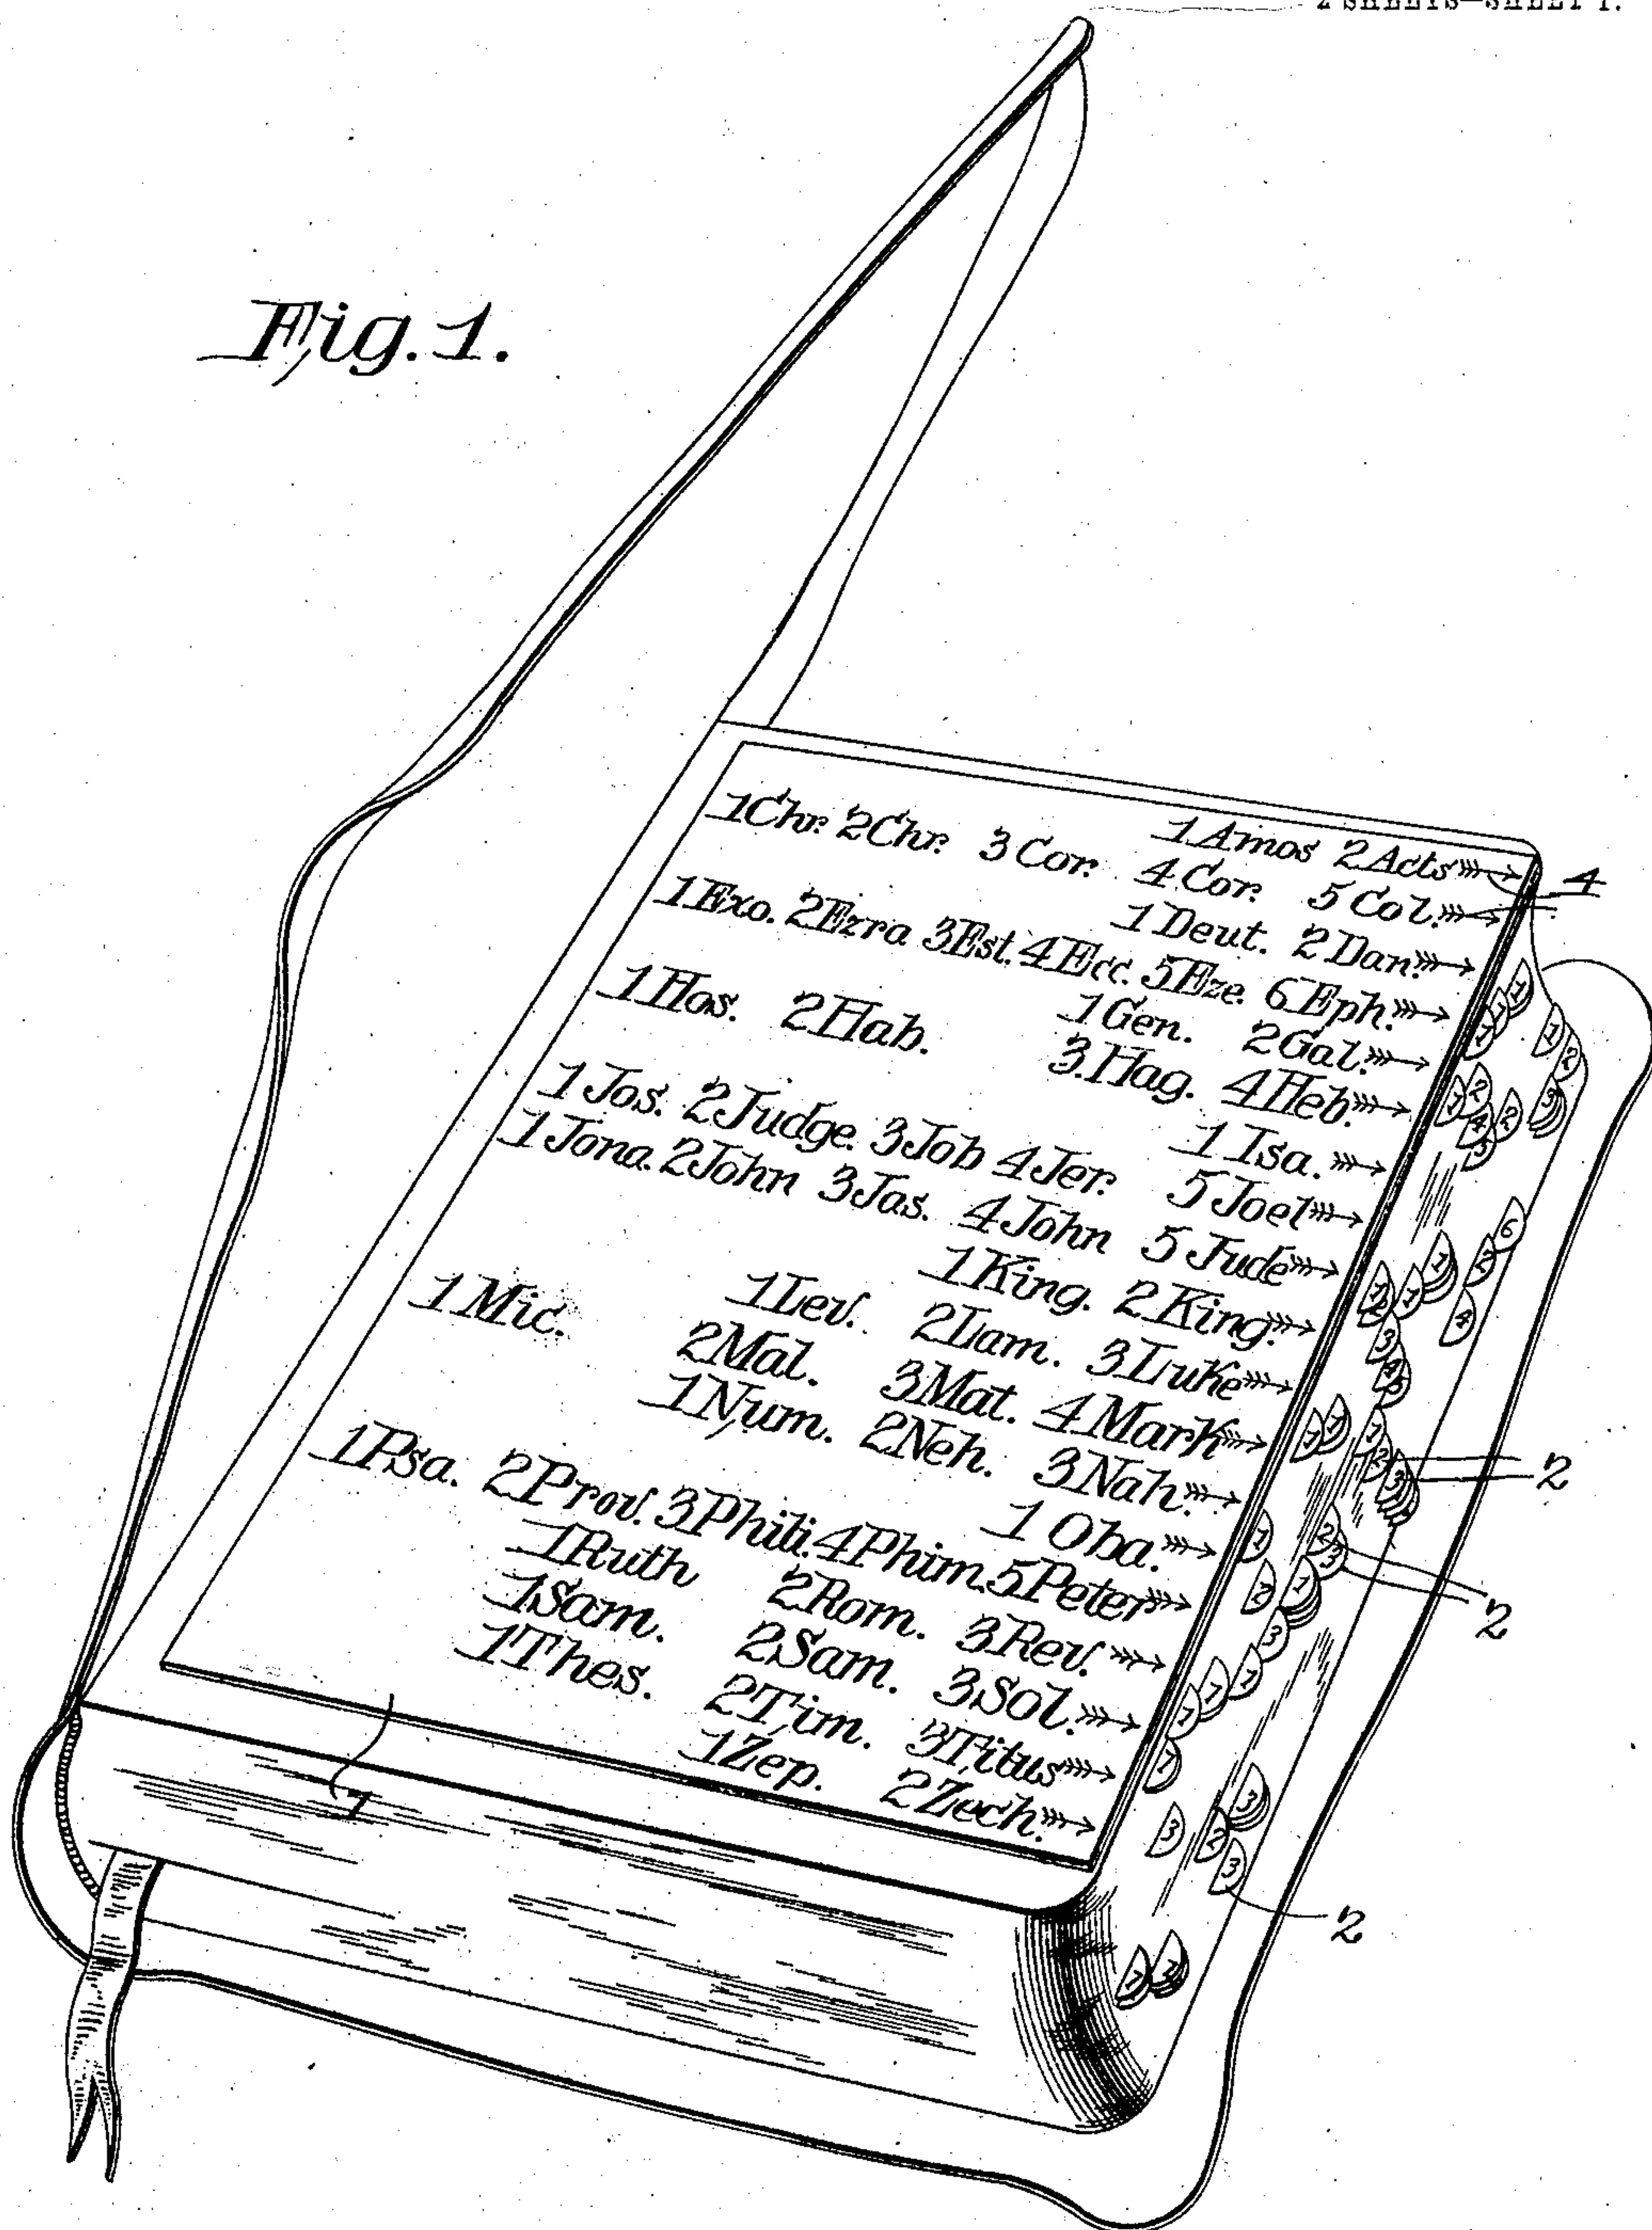 2 SHEETS—SHEET 1.
Fig. 1.
1 Amos 2 Acts
1 Chr. 2 Chr. 3 Cor. 4 Cor. 5 Col.
4
1 Deut. 2 Dan.
1 Exo. 2 Ezra 3 Est. 4 Ecc. 5 Eze. 6 Eph.
1 Gen. 2 Gal.
1 Hos. 2 Hab. 3. Hag. 4 Heb.
1 Isa.
1 Jos. 2 Judge. 3 Job 4 Jer. 5 Joel
1 Jona. 2 John 3 Jas. 4 John 5 Jude
1 King. 2 King.
1 Lev. 2 Lam. 3 Luke
1 Mic. 2 Mal. 3 Mat. 4 Mark
2
1 Num. 2 Neh. 3 Nah.
1 Oba.
1 Psa. 2 Prov. 3 Phili. 4 Phim. 5 Peter
2
1 Ruth 2 Rom. 3 Rev.
1 Sam. 2 Sam. 3 Sol.
1 Thes. 2 Tim. 3 Titus
1 Zep. 2 Zech.
1
2